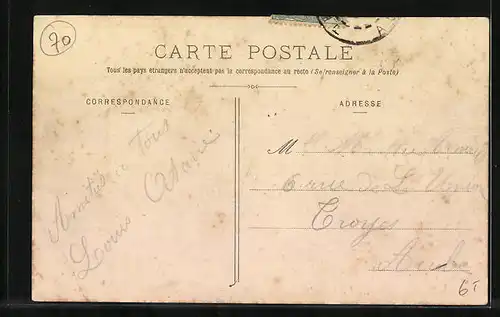 70
CARTE POSTALE
Tous les pays étrangers n'acceptent pas la correspondance au recto (Se renseigner à la Poste)
CORRESPONDANCE
Amitiés a Tous
Louis
ADRESSE
M
6 rue De L'Union
Troyes
Aube